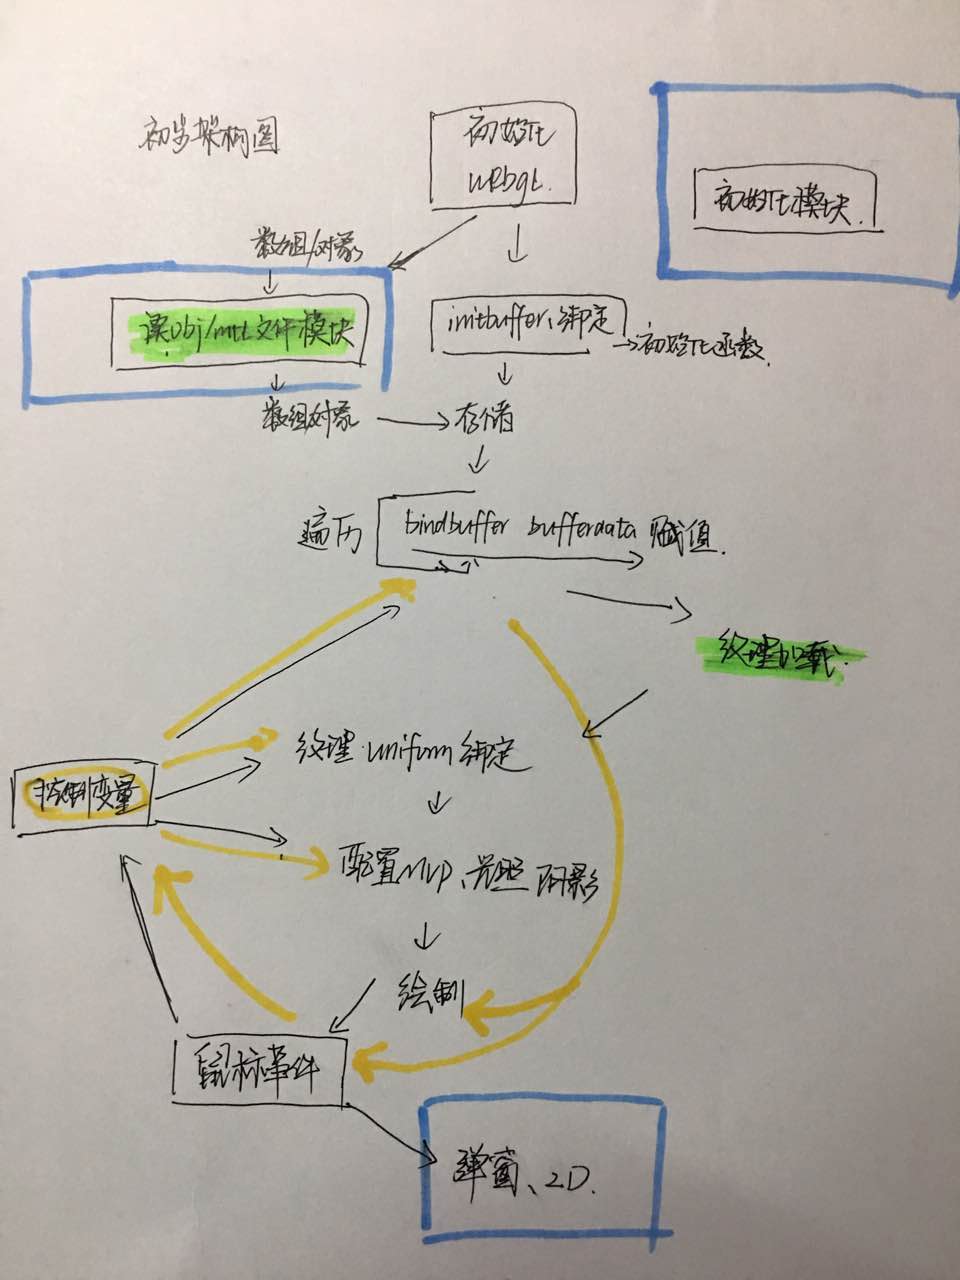 初步架构图
初始化
webgl.
初始化模块.
数组/对象
读obj/mtl文件模块
initbuffer、绑定
初始化函数.
数组对象
存储
遍历
bindbuffer bufferdata 赋值.
纹理加载.
纹理.uniform绑定
控制变量
配置MVP、光照 阴影
绘制
鼠标事件
弹窗、2D.